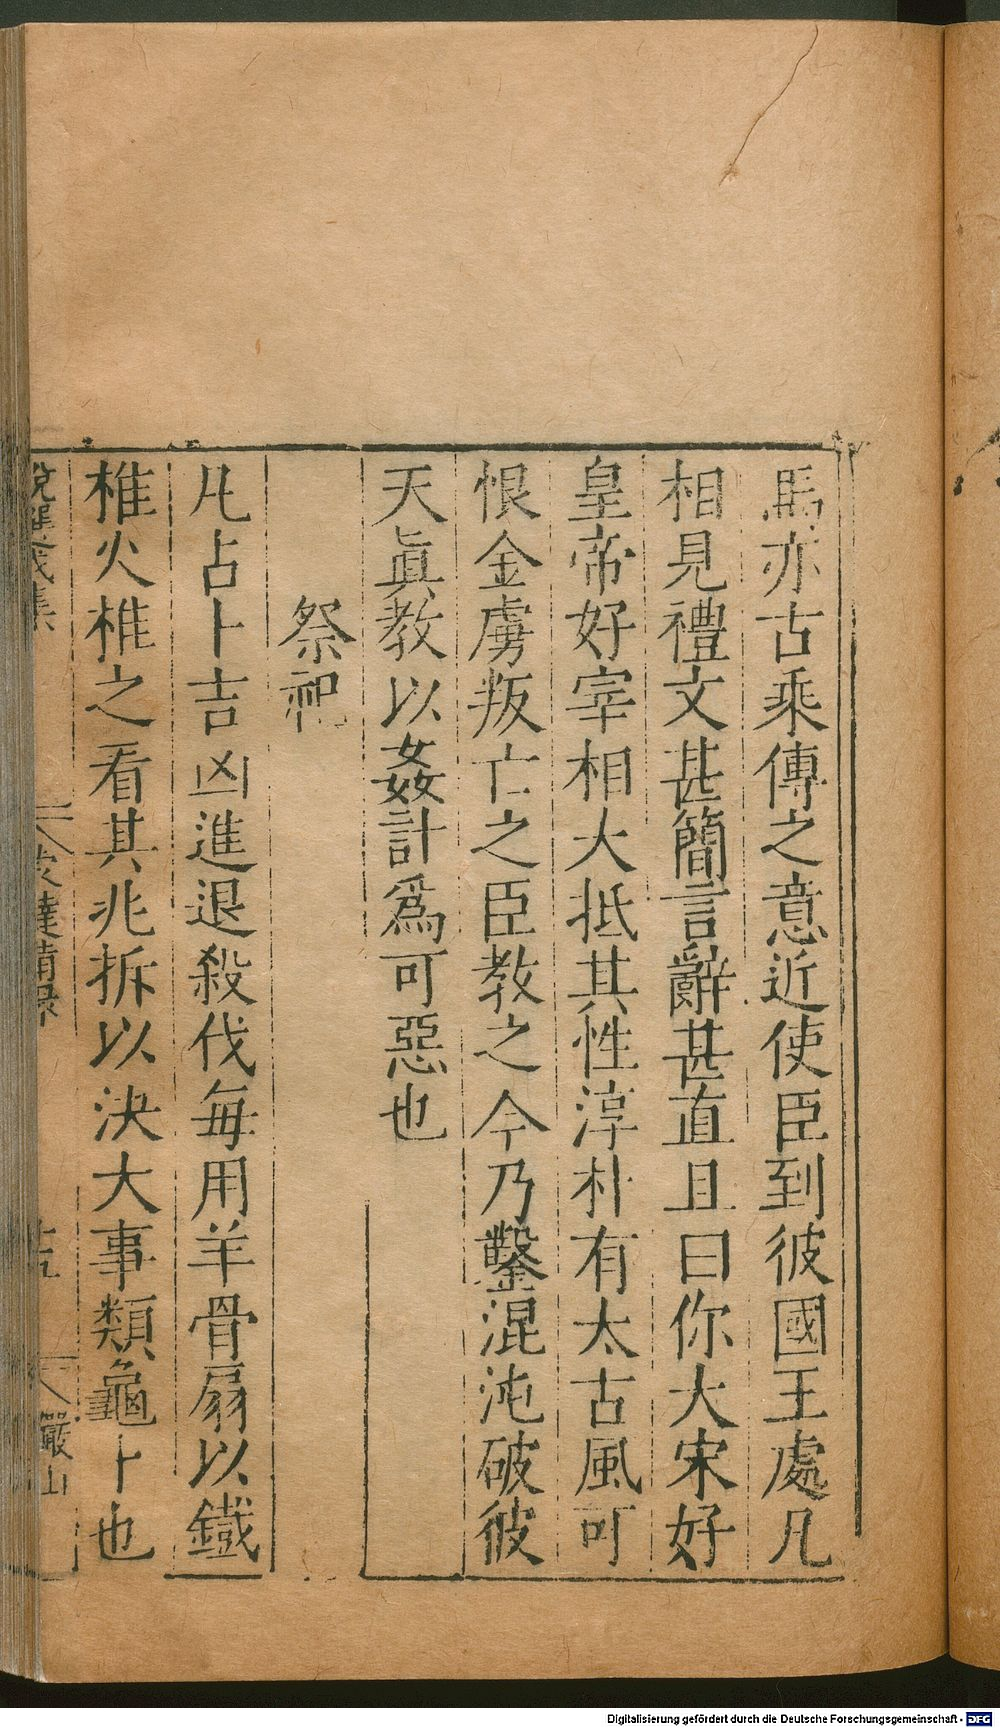 馬亦古乘傳之意近使臣到彼國王處凡
相見禮文甚簡言辭甚直且曰你大宋好
皇帝好宰相大抵其性淳朴有太古風可
恨金虜叛亡之臣教之今乃鑿混沌破彼
天眞教以姦計爲可惡也
祭祀
凡占卜吉凶進退殺伐每用羊骨扇以鐵
椎火椎之看其兆拆以決大事類龜卜也
說選戊集
蒙韃備録
十五
儼山
Digitalisierung gefördert durch die Deutsche Forschungsgemeinschaft - DFG